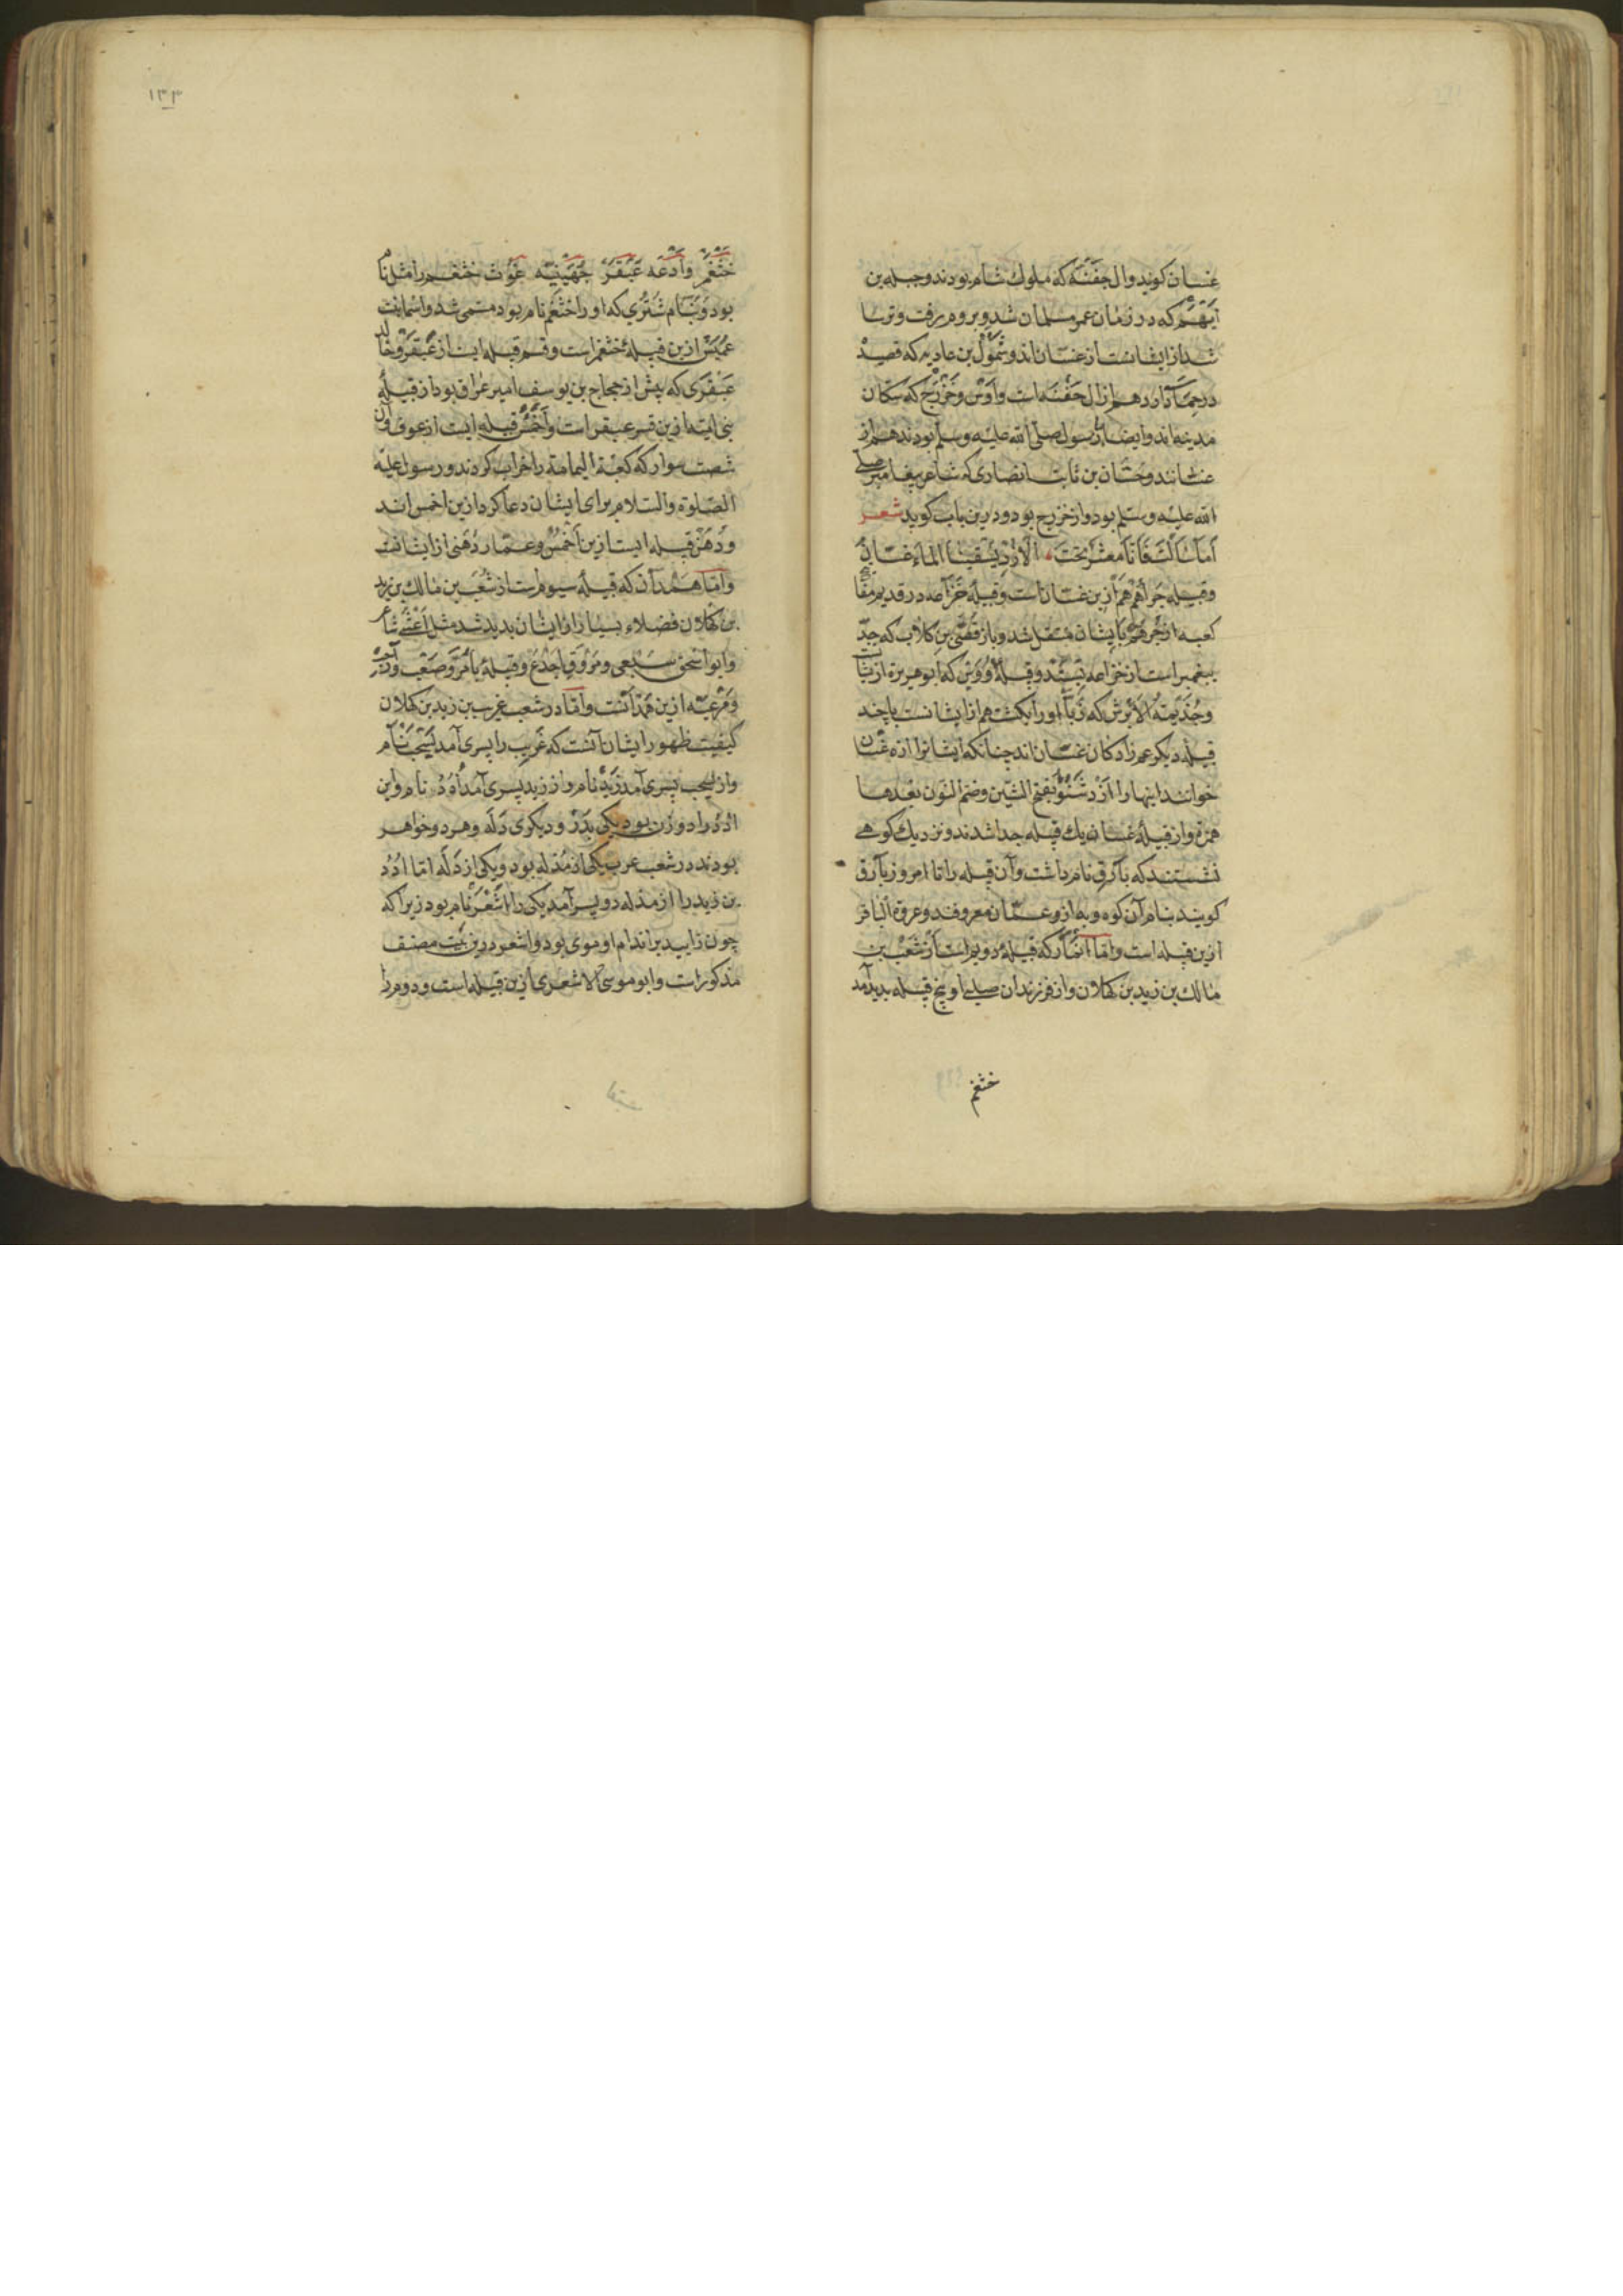 غسان کویند وال جفنه که ملوک شام بودند و جبله بن
ایهم که در زمان عمر مسلمان شد و بروم رفت و ترسا
شد از ایشانست از غسان اند و سمؤل بن عادیه که قصیدٔ
در حماسه دارد هم از ال جفنه است و اوس و خزرج که سکان
مدینه اند و انصار رسول صلی الله علیه وسلم بودند هم از
غسانند و حسان بن ثابت انصاری که شاعر پیغامبر صلی
الله علیه وسلم بود و از خزرج بود و درین باب کوید شعر
اما سالت فانا معشر نجب الازد نسبتنا الماء غسان
وقبیله جراهم هم ازین غسان است و قبیلهٔ خزاعه در قدیم مفاتیح
کعبه از جرهم بایشان منتقل شد و باز قصی بن کلاب که جد
پیغمبر است از خزاعه بستد و قبیلهٔ دوس که ابو هریره ازیشانست
وجذیمة الابرش که زبا او را بکشت هم از ایشانست با چند
قبیلهٔ دیکر عم زادکان غسان اند چنانکه ایشانرا ازد غسان
خوانند اینها را ازد شنؤ بفتح الشین وضم النون بعدها
همزة و از قبیلهٔ غسان یک قبیله جدا شدند و نزدیک کوهی
نشستند که بارق نام داشت و آن قبیله را تا امروز بارق
کویند بنام آن کوه و به ازد عمان معروفند و عروة البارقی
ازین قبیله است واما انمار که قبیلهٔ دویم است از شعب بن
مالک بن زید بن کهلان و از فرزندان صلبی او پنج قبیله بدید آمد
خثعم
۱۳۳
خثعم وادعه عبقر جهینیه غوث خثعم را مثل نام
بود و بنام شتری که او را خثعم نام بود مسمی شد و اسما بنت
عمیس ازین قبیلهٔ خثعم است و قسر قبیله ایست از عبقر و خالد
عبقری که پیش از حجاج بن یوسف امیر عراق بود از قبیلهٔ
بنی امیه ازین قسر عبقر است و احمس قبیله ایست از غوث و آن
شصت سوار که کعبة الیمامة را خراب کردند و رسول علیه
الصلوة والسلام برای ایشان دعا کرد ازین احمس اند
ودهن قبیله ایست ازین احمس وعمار دهنی از ایشانست
واما همدان که قبیلهٔ سیوم است از شعب بن مالک بن زید
بن کهلان فضلاء بسیار از ایشان بدید شد مثل اعشی شاعر
وابو اسحق سبیعی ومسروق اجدع وقبیلهٔ یام و صعب
ومرعیه ازین همدانست واما در شعب عریب بن زید بن کهلان
کیفیت ظهور ایشان آنست که عریب را پسری آمد یشجب نام
واز یشجب پسری آمد زید نام و از زید پسری آمد اُدَد نام و این
ادد را دو زن بود یکی بذر و دیکری دله وهر دو خواهر
بودند در شعب عریب یکی از مذله بود و یکی از دله اما ادد
بن زید را از مذله دو پسر آمد یکی را اشعر نام بود زیرا که
چون زایید بر اندام او موی بود و اشعر درین بیت مصنف
مذکور است وابو موسی الاشعری ازین قبیله است و دوم را